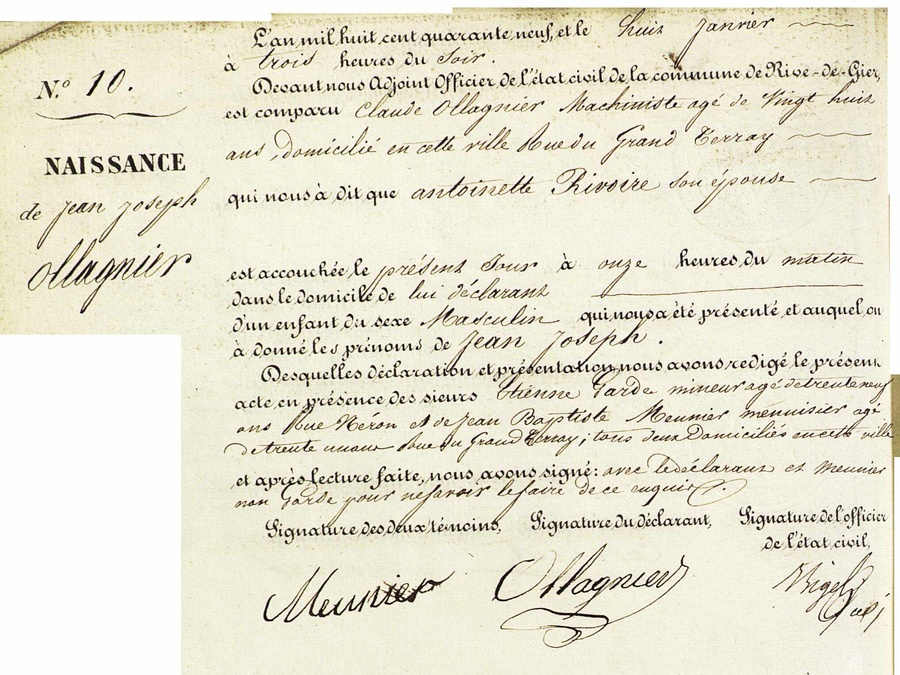 N.º 10.
NAISSANCE
de Jean Joseph
Ollagnier
L'an mil huit cent quarante neuf, et le huit Janvier
à trois heures du Soir.
Devant nous Adjoint Officier de l'état civil de la commune de Rive-de-Gier,
est comparu Claude Ollagnier Machiniste agé de Vingt huit
ans, domicilié en cette ville Rue du Grand Terray
qui nous à dit que antoinette Rivoire son épouse
est accouchée le présent Jour à onze heures du matin
dans le domicile de lui déclarant
d'un enfant du sexe Masculin qui nous a été présenté et auquel on
à donné les prénoms de Jean Joseph.
Desquelles déclaration et présentation, nous avons redigé le présent
acte, en présence des sieurs Etienne Garde mineur agé de trente neuf
ans Rue Néron et de Jean Baptiste Meunier menuisier agé
de trente un ans Rue du Grand Terray; tous deux Domiciliés en cette ville
et après lecture faite, nous avons signé: avec le déclarant et Meunier
non Garde pour ne savoir le faire de ce enquis.
Signature des deux témoins, Signature du déclarant, Signature de l'officier
de l'état civil,
Meunier Ollagnier